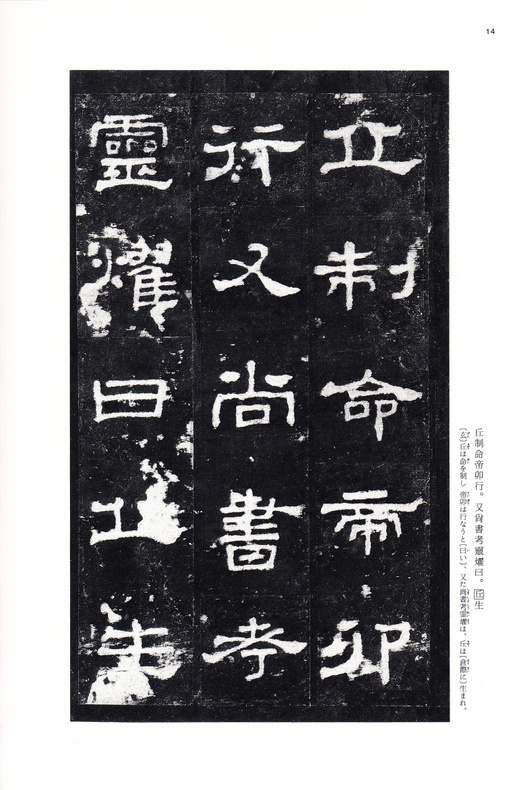 14
丘制命帝卯
行又尚書考
靈燿曰丘生
丘制命帝卯行。又尙書考靈燿曰。丘生
〔玄〕丘は命を制し、帝卯は行なうと〔曰い〕、又た尚書考靈燿は、丘は〔倉際に〕生まれ、